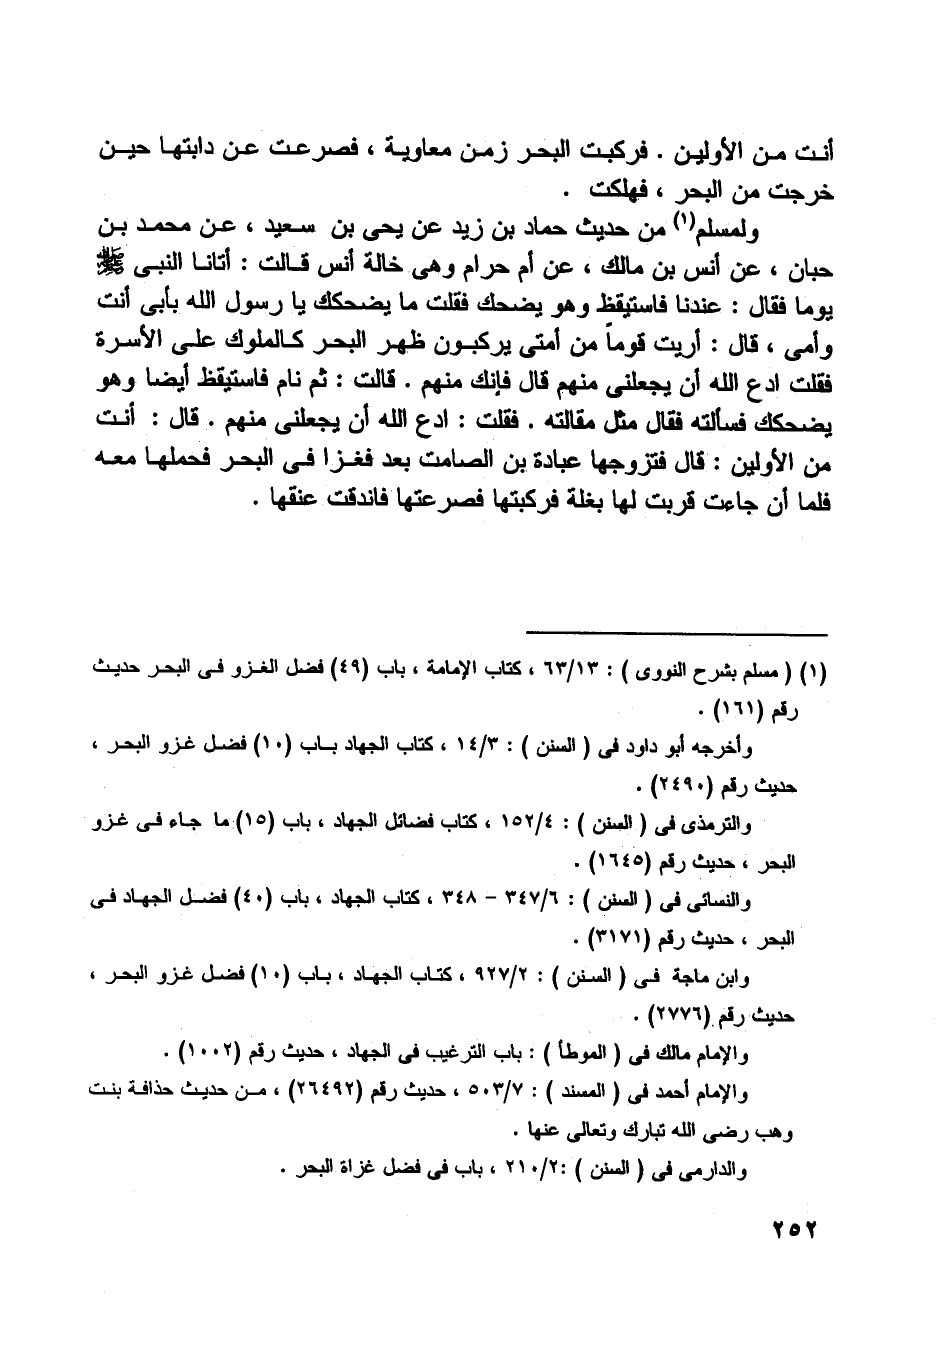 أنت من الأولين . فركبت البحر زمن معاوية ، فصرعت عن دابتها حين
خرجت من البحر ، فهلكت .
ولمسلم(١) من حديث حماد بن زيد عن يحى بن سعيد ، عن محمد بن
حبان ، عن أنس بن مالك ، عن أم حرام وهى خالة أنس قالت : أتانا النبى ﷺ
يوما فقال : عندنا فاستيقظ وهو يضحك فقلت ما يضحكك يا رسول الله بأبى أنت
وأمى ، قال : أريت قوماً من أمتى يركبون ظهر البحر كالملوك على الأسرة
فقلت ادع الله أن يجعلنى منهم قال فإنك منهم . قالت : ثم نام فاستيقظ أيضا وهو
يضحكك فسألته فقال مثل مقالته . فقلت : ادع الله أن يجعلنى منهم . قال : أنت
من الأولين : قال فتزوجها عبادة بن الصامت بعد فغزا فى البحر فحملها معه
فلما أن جاءت قربت لها بغلة فركبتها فصرعتها فاندقت عنقها .
(١) ( مسلم بشرح النووى ) : ٦٣/١٣ ، كتاب الإمامة ، باب (٤٩) فضل الغزو فى البحر حديث
رقم (١٦١) .
وأخرجه أبو داود فى ( السنن ) : ١٤/٣ ، كتاب الجهاد باب (١٠) فضل غزو البحر ،
حديث رقم (٢٤٩٠) .
والترمذى فى ( السنن ) : ١٥٢/٤ ، كتاب فضائل الجهاد ، باب (١٥) ما جاء فى غزو
البحر ، حديث رقم (١٦٤٥) .
والنسائى فى ( السنن ) : ٣٤٧/٦ – ٣٤٨ ، كتاب الجهاد ، باب (٤٠) فضل الجهاد فى
البحر ، حديث رقم (٣١٧١) .
وابن ماجة فى ( السنن ) : ٩٢٧/٢ ، كتاب الجهاد ، باب (١٠) فضل غزو البحر ،
حديث رقم (٢٧٧٦) .
والإمام مالك فى ( الموطأ ) : باب الترغيب فى الجهاد ، حديث رقم (١٠٠٢) .
والإمام أحمد فى ( المسند ) : ٥٠٣/٧ ، حديث رقم (٢٦٤٩٢) ، من حديث حذافة بنت
وهب رضى الله تبارك وتعالى عنها .
والدارمى فى ( السنن ) :٢١٠/٢ ، باب فى فضل غزاة البحر .
٢٥٢